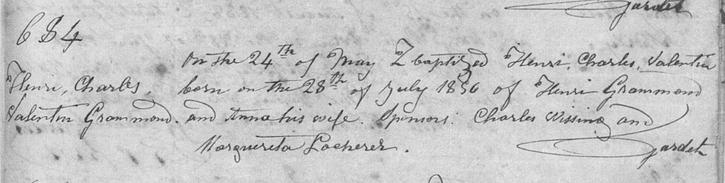 Gardet
684
On the 24th of May I baptized Henri, Charles, Valentin
Henri, Charles, born on the 28th of July 1850 of Henri Grammond
Valentin Grammond. and Anna his wife. Sponsors: Charles and
Margareta Locherer. Gardet